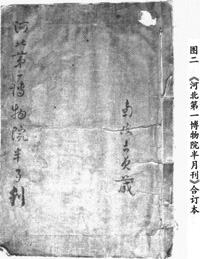 图二 《河北第一博物院半月刊》合订本
河北第一博物院半月刊
藏